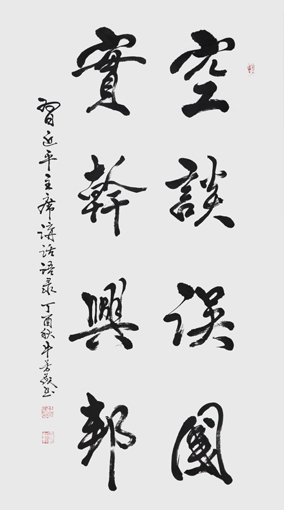 空談误國
實幹興邦
習近平主席講話語录 丁酉秋